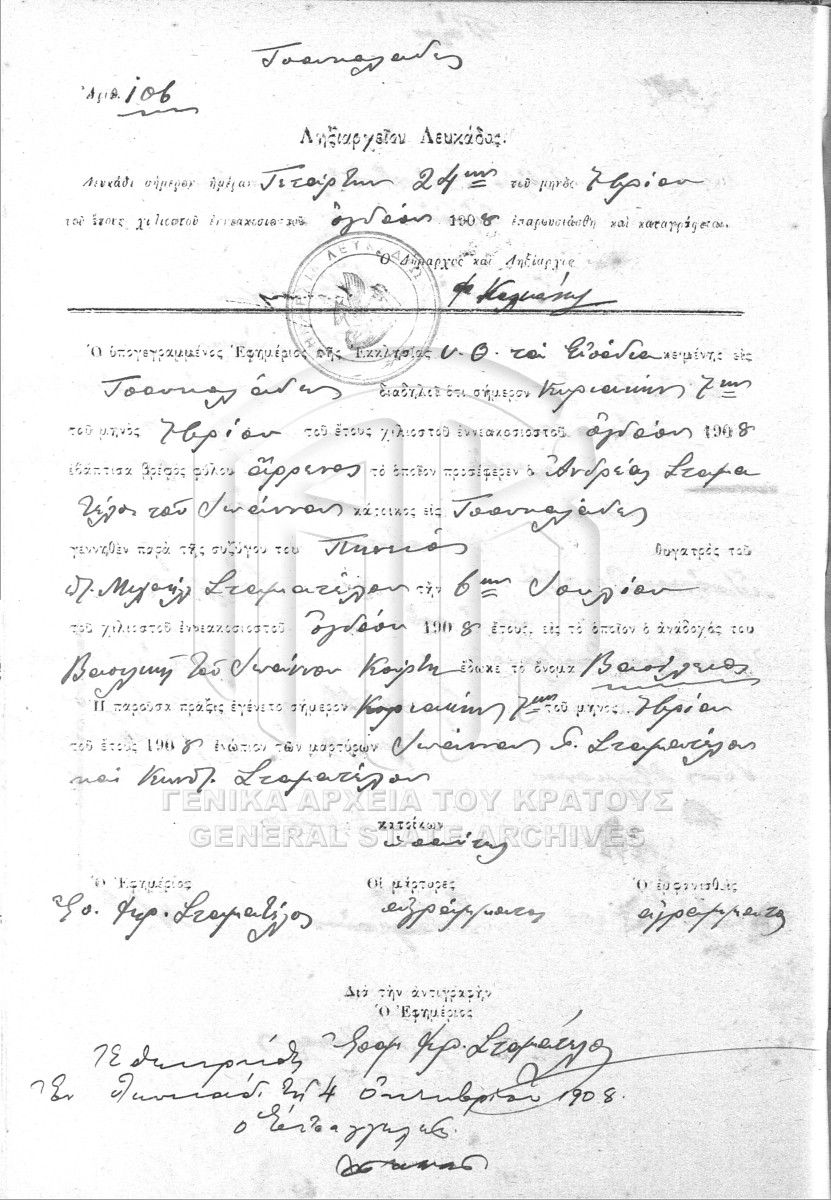 Τσουκαλάδες
Ἀριθ. 106
Ληξιαρχεῖον Λευκάδος.
Λευκάδι σήμερον ἡμέραν Τετάρτην 24ην τοῦ μηνὸς 7βρίου
τοῦ ἔτους χιλιοστοῦ ἐννεακοσιοστοῦ ὀγδόου 1908 ἐπαρουσιάσθη καὶ καταγράφεται.
Ὁ Δήμαρχος καὶ Ληξίαρχος
Ὁ ὑπογεγραμμένος Ἐφημέριος τῆς Ἐκκλησίας Υ. Θ. τὰ Εἰσόδια κειμένης εἰς
Τσουκαλάδες διαδηλοῖ ὅτι σήμερον Κυριακὴν 7ην
τοῦ μηνὸς 7βρίου τοῦ ἔτους χιλιοστοῦ ἐννεακοσιοστοῦ ὀγδόου 1908
ἐβάπτισα βρέφος φύλου ἄρρενος τὸ ὁποῖον προσέφερεν ὁ Ἀνδρέας Σταμα
τέλος τοῦ Ἰωάννου κάτοικος εἰς Τσουκαλάδες
γεννηθὲν παρὰ τῆς συζύγου του θυγατρὸς τοῦ
Σταματέλου τὴν 6ην Ἰουλίου
τοῦ χιλιοστοῦ ἐννεακοσιοστοῦ ὀγδόου 1908 ἔτους, εἰς τὸ ὁποῖον ὁ ἀνάδοχός του
Βασιλικὴ τοῦ Ἰωάννου Κούρτη ἔδωκε τὸ ὄνομα Βασίλειος
Ἡ παροῦσα πρᾶξις ἐγένετο σήμερον Κυριακὴν 7ην τοῦ μηνὸς 7βρίου
τοῦ ἔτους 1908 ἐνώπιον τῶν μαρτύρων Ἰωάννου Σταματέλου
καὶ Κωνστ. Σταματέλου
ΓΕΝΙΚΑ ΑΡΧΕΙΑ ΤΟΥ ΚΡΑΤΟΥΣ
GENERAL STATE ARCHIVES
κατοίκων
Ὁ Ἐφημέριος Οἱ μάρτυρες Ὁ ἐμφανισθείς
Σταματέλος ἀγράμματοι ἀγράμματος
Διὰ τὴν ἀντιγραφὴν
Ὁ Ἐφημέριος
Σταματέλος
Ἐθεωρήθη
Ἐν Λευκάδι τῇ 4 Ὀκτωβρίου 1908.
ὁ Εἰσαγγελεὺς